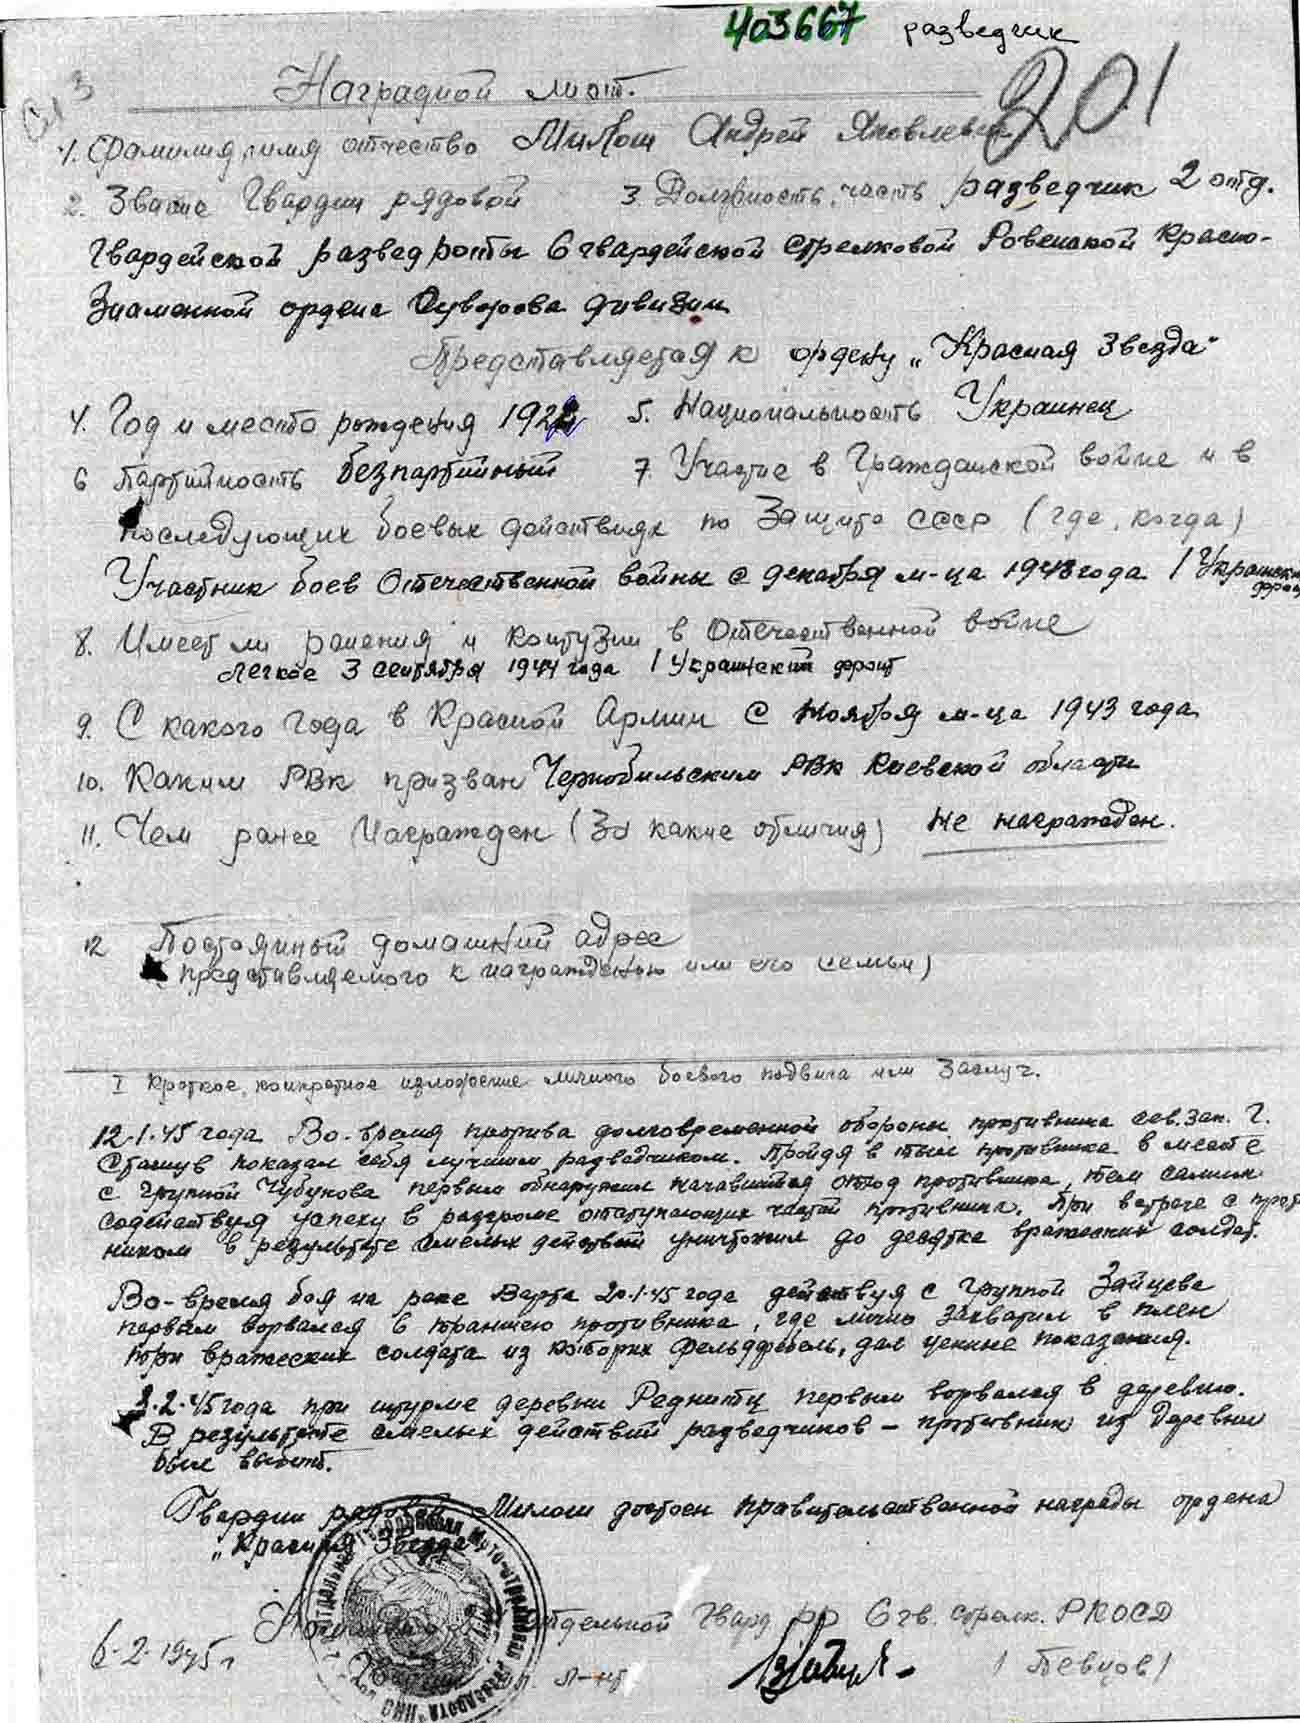 403667 разведчик
201
Наградной лист.
1. Фамилия, имя отчество Милош Андрей Яковлевич
2. Звание Гвардии рядовой 3. Должность, часть разведчик 2 отд.
Гвардейской развед роты 6 гвардейской стрелковой Ровенской Красно-
Знаменной ордена Суворова дивизии
Представляется к ордену „Красная Звезда"
4. Год и место рождения 192 5. Национальность Украинец
6 Партийность беспартийный 7. Участие в Гражданской войне и в
последующих боевых действиях по Защите СССР (где, когда)
Участник боев Отечественной войны с декабря м-ца 1943 года 1 Украинский фронт
8. Имеет ли ранения и контузии в Отечественной войне
легкое 3 сентября 1944 года 1 Украинский фронт
9. С какого года в Красной Армии с Ноября м-ца 1943 года
10. Каким РВК призван Чернобыльским РВК Киевской области
11. Чем ранее Награжден (За какие отличия) Не награжден.
12 Постоянный домашний адрес
(представляемого к награждению или его семьи)
I Краткое, конкретное изложение личного боевого подвига или Заслуг.
12.1.45 года Во-время прорыва долговременной обороны противника сев. зап. г.
Сташув показал себя лучшим разведчиком. Пройдя в тыл противника в месте
с группой Чубукова первым обнаружил начавшийся отход противника, тем самым
содействуя успеху в разгроме отступающих частей противника. При встрече с проти
ником в результате смелых действий уничтожил до десятка вражеских солдат.
Во-время боя на реке Варта 20.1.45 года действуя с группой Зайцева
первым ворвался в траншею противника, где лично захватил в плен
три вражеских солдата из которых фельдфебель, дал ценные показания.
3.2.45 года при штурме деревни Редниц первым ворвался в деревню.
В результате смелых действий разведчиков – противник из деревни
был выбит.
Гвардии рядовой Милош достоин правительственной награды ордена
„Красная Звезда"
отдельной Гвард РР 6 гв. стрелк. РКОСД
6.2.1945 г л-нт / Певцов /